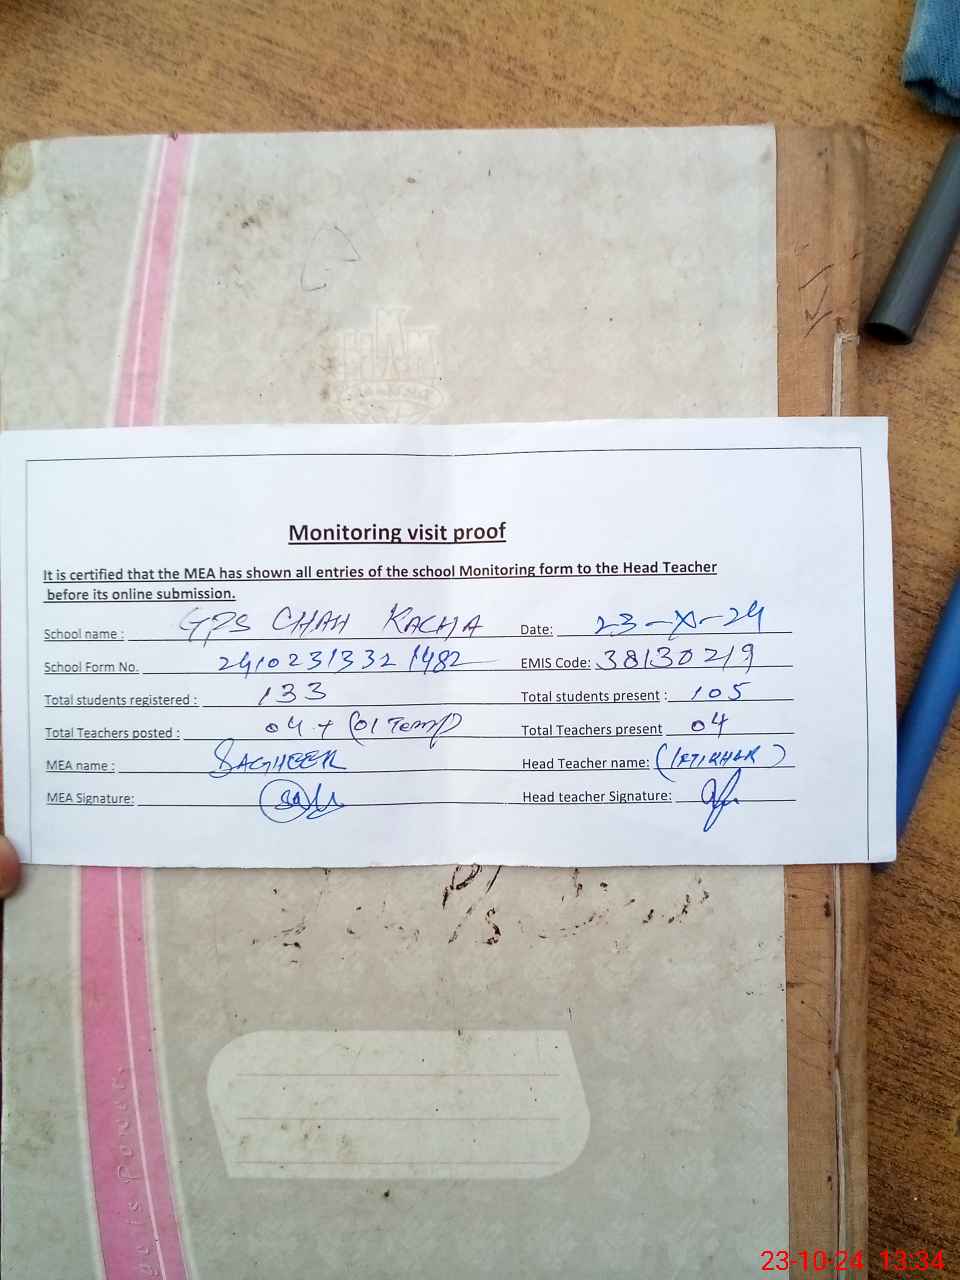 Monitoring visit proof
It is certified that the MEA has shown all entries of the school Monitoring form to the Head Teacher
before its online submission.
School name : GPS CHAH KACHA Date: 23-X-24
School Form No. 2410231332 1482 EMIS Code: 38130219
Total students registered : 133 Total students present : 105
Total Teachers posted : 04 + (01 Temp) Total Teachers present 04
MEA name : SAGHEER Head Teacher name: (IFTIKHAR)
MEA Signature: Head teacher Signature:
23-10-24 13:34